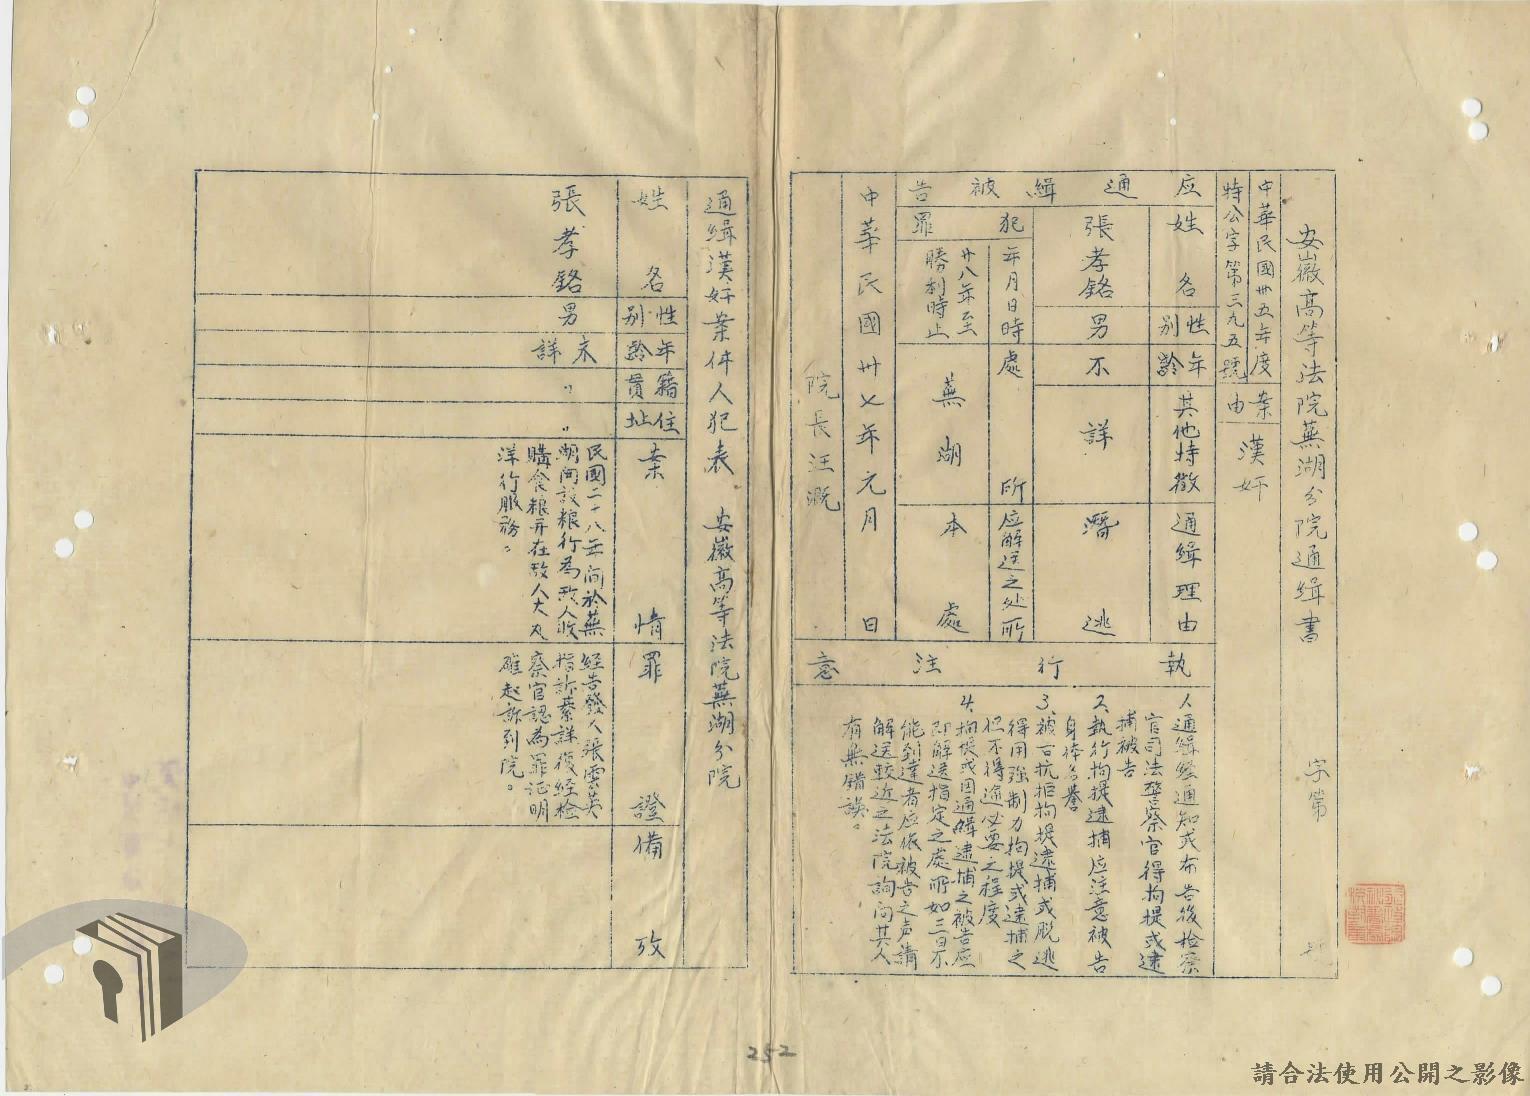 安徽高等法院蕪湖分院通緝書　字第　號
中華民國卅五年度
特公字第三九五號
案由
漢奸
应通緝被告
姓名
張孝銘
性別
男
年齡
其他特徵
不詳
通緝理由
潛逃
犯罪
年月日時
廿八年至
勝利時止
處所
蕪湖
应解送之处所
本處
中華民國卅七年元月　日
院長汪溉
執行注意
1、通緝經通知或布告後检察
官司法警察官得拘提或逮
捕被告
2、執行拘提逮捕应注意被告
身体名譽
3、被告抗拒拘提逮捕或脱逃
得用強制力拘提或逮捕之
但不得逾必要之程度
4、拘提或因通緝逮捕之被告应
即解送指定之處所如三日不
能到達者应依被告之声請
解送較近之法院詢问其人
有無錯誤。
通緝漢奸案件人犯表　安徽高等法院蕪湖分院
姓名
張孝銘
性別
男
年齡
未詳
籍貫
〃
住址
〃
案情
民國二十八年间於蕪
湖开設粮行為敌人收
購食粮并在敌人大丸
洋行服務。
罪證
経告發人張雲英
指訴綦詳復经检
察官認為罪证明
確起訴到院。
備攷
252
請合法使用公開之影像